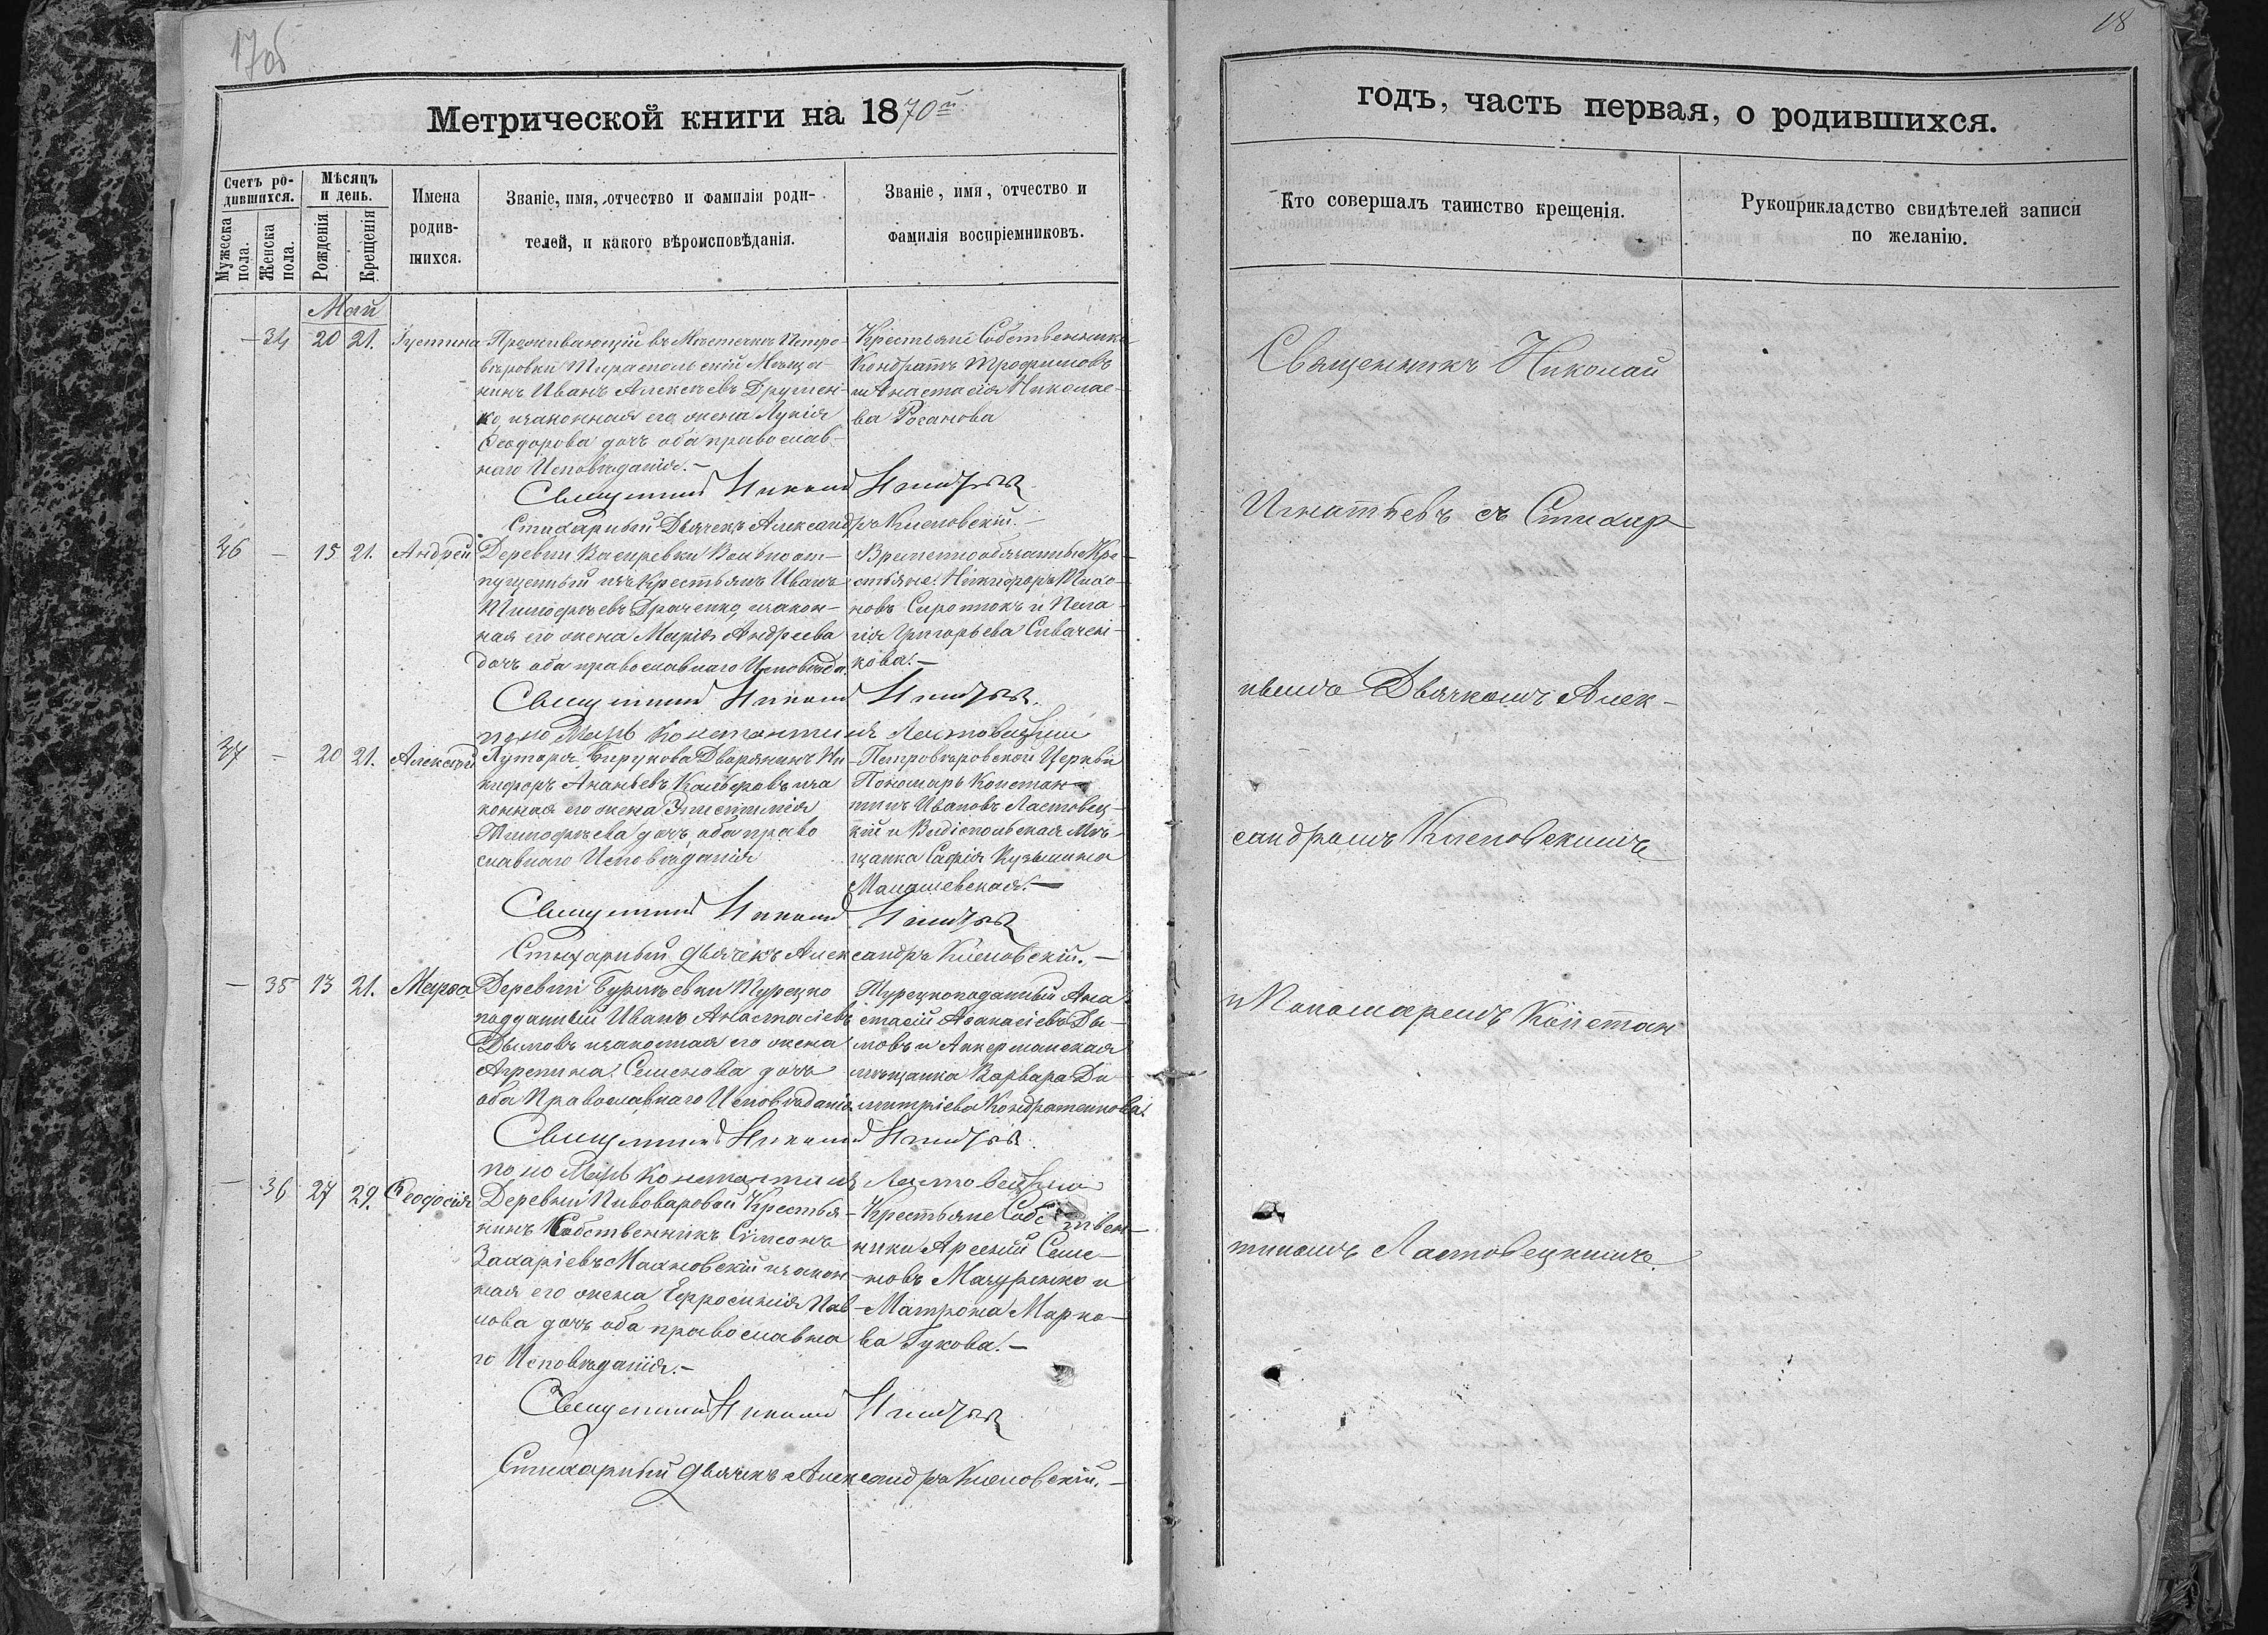 17об
Метрической книги на 1870й
Счетъ ро-
дившихся.
Мужеска
пола.
Женска
пола.
Мѣсяцъ
и день.
Рожденія.
Крещенія
Имена
родив-
шихся.
Званіе, имя, отчество и фамилія роди-
телей, и какого вѣроисповѣданія.
Званіе, имя, отчество и
фамилія воспріемниковъ.
Май
— 34 20 21. Іустина
Проживающій въ Мѣстечкѣ Петро-
вѣровки Тираспольскій Мѣща-
нинъ Иванъ Алексѣевъ
законная его жена Лукія
Ѳеодорова дочь оба православ-
наго Исповѣданія.—
Крестьяне Собственники
Кондратъ Трофимовъ
и Анастасія Николае-
ва Росанова
Священникъ Николай Игнатьевъ
Стихарный Дьячекъ Александръ Кнеповскій.—
36 — 15 21. Андрей
Деревни Вольноот-
пущенный изъ Крестьянъ Иванъ
Тимофѣевъ Драченко, закон-
ная его жена Марія Андреева
дочь оба православнаго Исповѣда.
Временнообязанные Кре-
стьяне: Никифоръ Тихо-
новъ Сиротокъ и Пела-
гія Григорьева Сивачен-
кова.—
Священникъ Николай Игнатьевъ.
Пономарь Константинъ Ластовецкій
37 — 20 21. Алексѣй
Хутора Бирукова Дворянинъ Ни-
кифоръ Ананьевъ за
конная его жена
Тимофѣева дочь, оба право
славнаго Исповѣданія
Петровѣровской Церкви
Пономарь Констан-
тинъ Ивановъ Ластовец-
кій и Видіопольская Мѣ-
щанка Софія Кузьмина
Манашевская.—
Священникъ Николай Игнатьевъ
Стихарный дьячекъ Александръ Кнеповскій.—
— 35 13 21. Марѳа
Деревни Турецко
подданный Иванъ Анастасіевъ
Дымовъ законная его жена
Агрепина Семенова дочь
оба Православнаго Исповѣданія
Турецкоподанный Ана-
стасій Аѳанасіевъ Ды-
мовъ и Аккерманская
мѣщанка Варвара Ди-
митріева Кондратенкова.
Священникъ Николай Игнатьевъ.
Пономарь Константинъ Ластовецкій
— 36 27 29. Ѳеодосія
Деревни Пивоваровой Крестья-
нинъ Собственникъ Сімеонъ
Захаріевъ Махновскій закон-
ная его жена Пав-
лова дочь оба православна
го Исповѣданія.—
Крестьяне Собствен-
ники Арсеній Семе-
новъ Мазуренко и
Матрона Марко-
ва Гукова.—
Священникъ Николай Игнатьевъ
Стихарный дьячекъ Александръ Кнеповскій.—
18
годъ, часть первая, о родившихся.
Кто совершалъ таинство крещенія.
Рукоприкладство свидѣтелей записи
по желанію.
Священникъ Николай
Игнатьевъ съ Стихар-
нымъ Дьячкомъ Алек-
сандромъ Кнеповскимъ
и Пономаремъ Констан
тиномъ Ластовецкимъ.